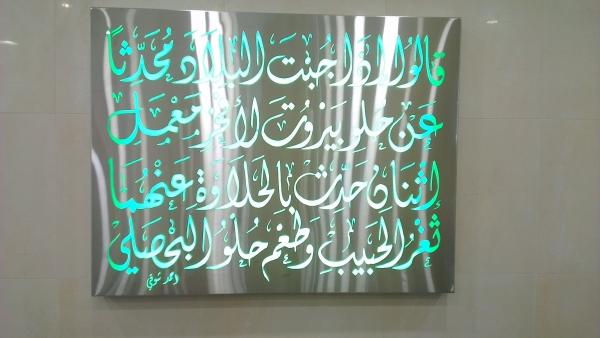 قالوا إذا جئت البلاد محدثاً
عن حلو بيروت لأفخر معمل
إثنان حدث بالحلاوة عنهما
ثغر الحبيب وطعم حلو البحصلي
أحمد شوقي